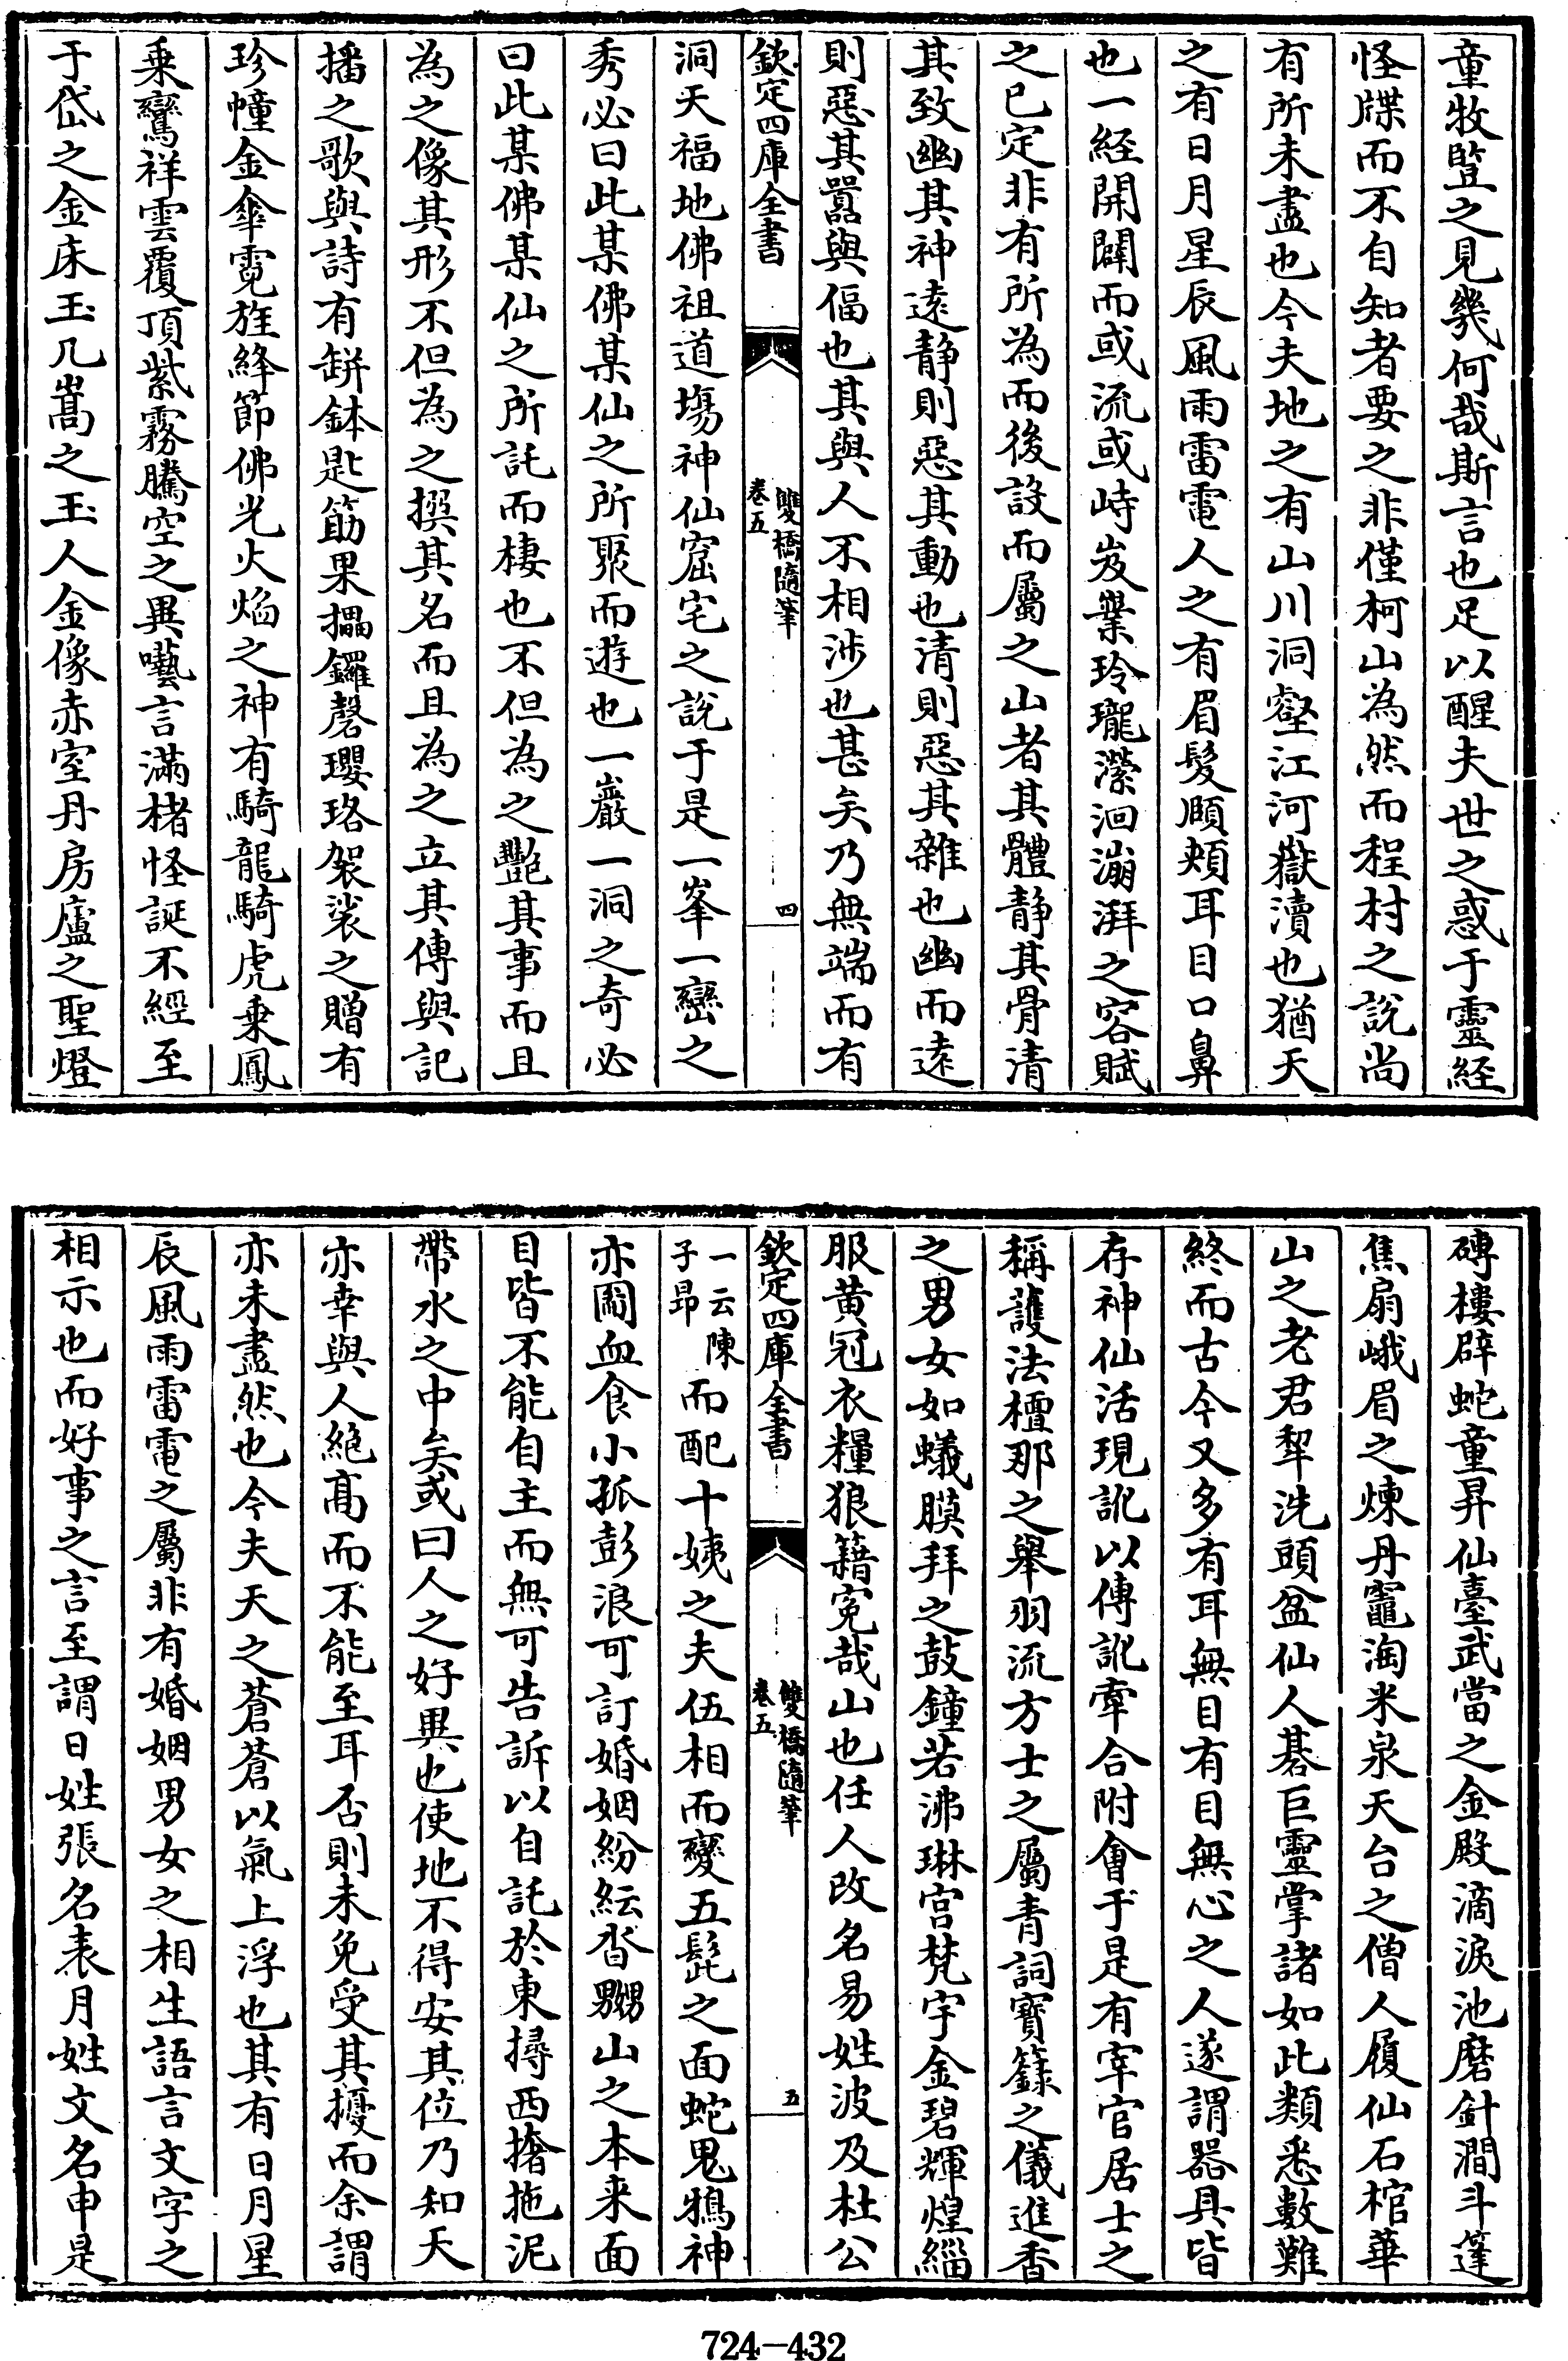 童牧豎之見幾何哉斯言也足以醒夫世之惑于靈経
怪牒而不自知者要之非僅柯山為然而程村之說尚
有所未盡也今夫地之有山川洞壑江河嶽瀆也猶天
之有日月星辰風雨雷電人之有眉髮頤頰耳目口鼻
也一経開闢而或流或峙岌嶪玲瓏瀠洄漰湃之容賦
之已定非有所為而後設而屬之山者其體靜其骨清
其致幽其神遠靜則惡其動也清則惡其雜也幽而遠
則惡其囂與偪也其與人不相涉也甚矣乃無端而有
欽定四庫全書
雙橋隨筆
卷五
四
洞天福地佛祖道場神仙窟宅之說于是一峯一巒之
秀必曰此某佛某仙之所聚而遊也一巖一洞之奇必
曰此某佛某仙之所託而棲也不但為之艷其事而且
為之像其形不但為之撰其名而且為之立其傳與記
播之歌與詩有缾鉢匙筯果攂鑼磬瓔珞袈裟之贈有
珍幢金傘霓旌絳節佛光火焔之神有騎龍騎虎乗鳳
乗鸞祥雲覆頂紫霧騰空之異囈言滿楮怪誕不經至
于岱之金床玉几嵩之玉人金像赤室丹房廬之聖燈
磚樓辟蛇童昇仙臺武當之金殿滴淚池磨針澗斗篷
焦扇峨眉之煉丹竈淘米泉天台之僧人履仙石棺華
山之老君犂洗頭盆仙人碁巨靈掌諸如此類悉數難
終而古今又多有耳無目有目無心之人遂謂器具皆
存神仙活現訛以傳訛牽合附會于是有宰官居士之
稱護法檀那之舉羽流方士之屬青詞寶籙之儀進香
之男女如蟻膜拜之鼓鐘若沸琳宮梵宇金碧輝煌緇
服黄冠衣糧狼籍寃哉山也任人改名易姓波及杜公
欽定四庫全書
雙橋隨筆
卷五
五
一云陳子昂而配十姨之夫伍相而變五髭之面蛇鬼鴉神
亦鬭血食小孤彭浪可訂婚姻紛紜沓嬲山之本来面
目皆不能自主而無可告訴以自託於東撏西撦拖泥
帶水之中矣或曰人之好異也使地不得安其位乃知天
亦幸與人絶髙而不能至耳否則未免受其擾而余謂
亦未盡然也今夫天之蒼蒼以氣上浮也其有日月星
辰風雨雷電之屬非有婚姻男女之相生語言文字之
相示也而好事之言至謂日姓張名表月姓文名申是
724—432